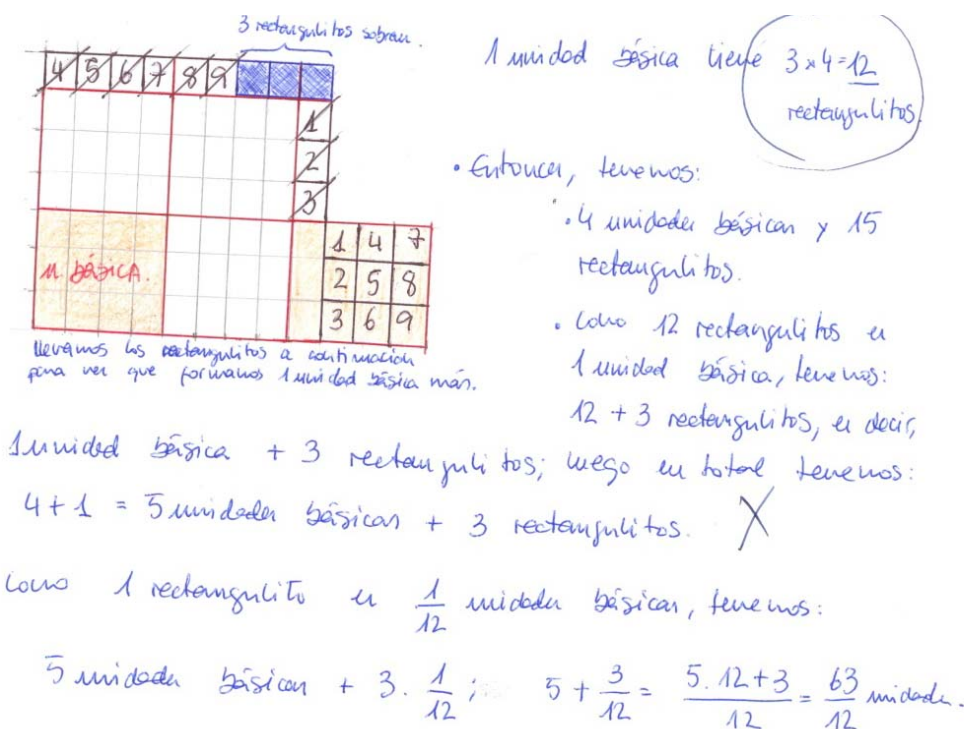 3 rectangulitos sobran.
4 5 6 7 8 9
1
2
3
1 4 7
2 5 8
3 6 9
U. BÁSICA.
llevamos los rectangulitos a continuación
para ver que formamos 1 unidad básica más.
1 unidad básica tiene 3 x 4 = 12
rectangulitos.
• Entonces, tenemos:
• 4 unidades básicas y 15
rectangulitos.
• Como 12 rectangulitos es
1 unidad básica, tenemos:
12 + 3 rectangulitos, es decir,
1 unidad básica + 3 rectangulitos; luego en total tenemos:
4 + 1 = 5 unidades básicas + 3 rectangulitos. X
Como 1 rectangulito es 1/12 unidades básicas, tenemos:
5 unidades básicas + 3 . 1/12 ; 5 + 3/12 = 5.12+3/12 = 63/12 unidades.